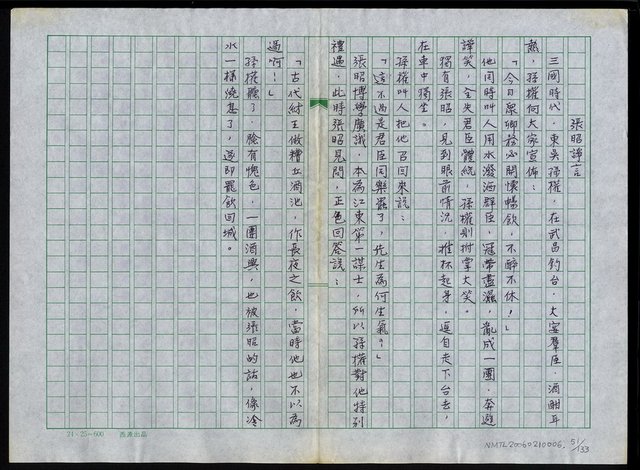 張昭諍言
三國時代，東吳孫權，在武昌釣台，大宴羣臣，酒酣耳
熱，孫權向大家宣佈：
「今日眾卿務必開懷暢飲，不醉不休！」
他同時叫人用水潑洒群臣，冠帶盡濕，亂成一團，奔避
譁笑，全失君臣體統，孫權則拊掌大笑。
獨有張昭，見到眼前情況，推杯起身，逕自走下台去，
在車中獨坐。
孫權叫人把他召回來說：
「這不過是君臣同樂罷了，先生為何生氣？」
張昭博學廣識，本為江東第一謀士，所以孫權對他特別
禮遇，此時張昭見問，正色回答說：
「古代紂王做糟丘酒池，作長夜之飲，當時他也不以為
過啊！」
孫權聽了，臉有愧色，一團酒興，也被張昭的話，像冷
水一樣澆熄了，遂即罷飲回城。
24×25＝600 西源出品
NMTL20060210006, 51/133